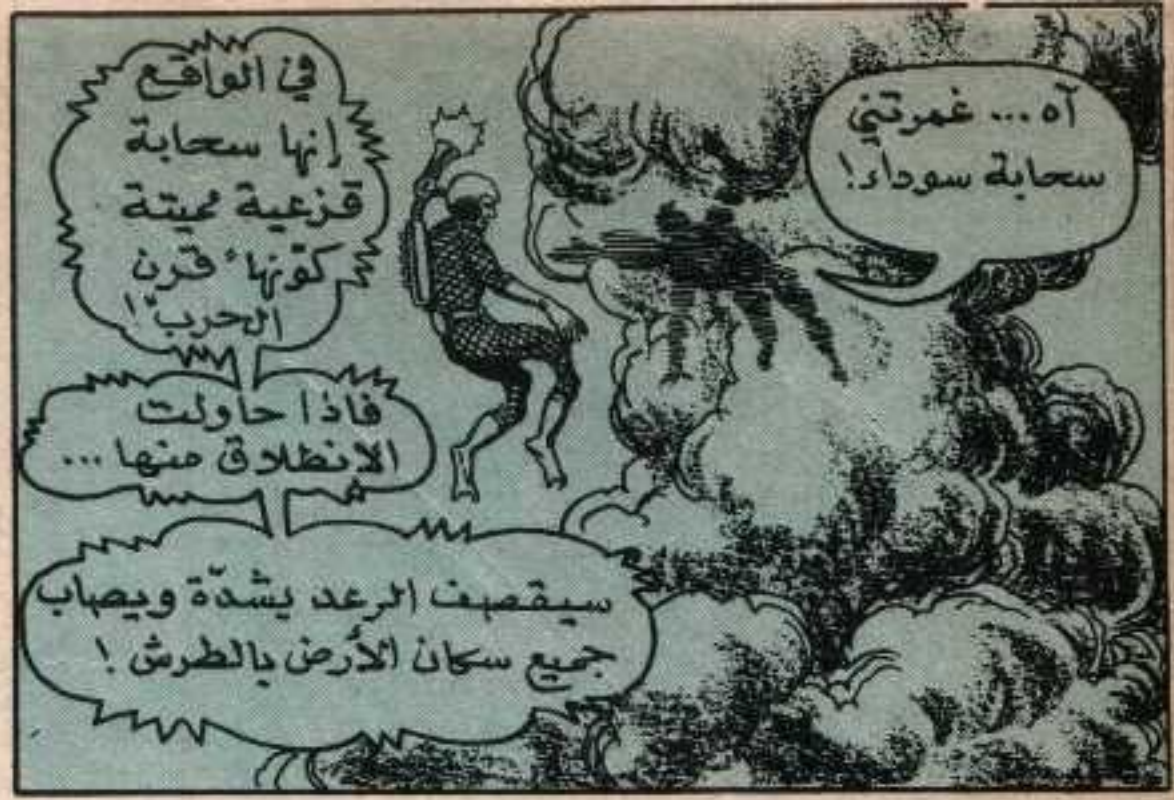 آه... غمرتني
سحابة سوداء!
في الواقع
إنها سحابة
قزعية مميتة
كوّنها "قرن
الحرب"!
فاذا حاولت
الانطلاق منها...
سيقصف الرعد بشدّة ويصاب
جميع سكان الأرض بالطرش!